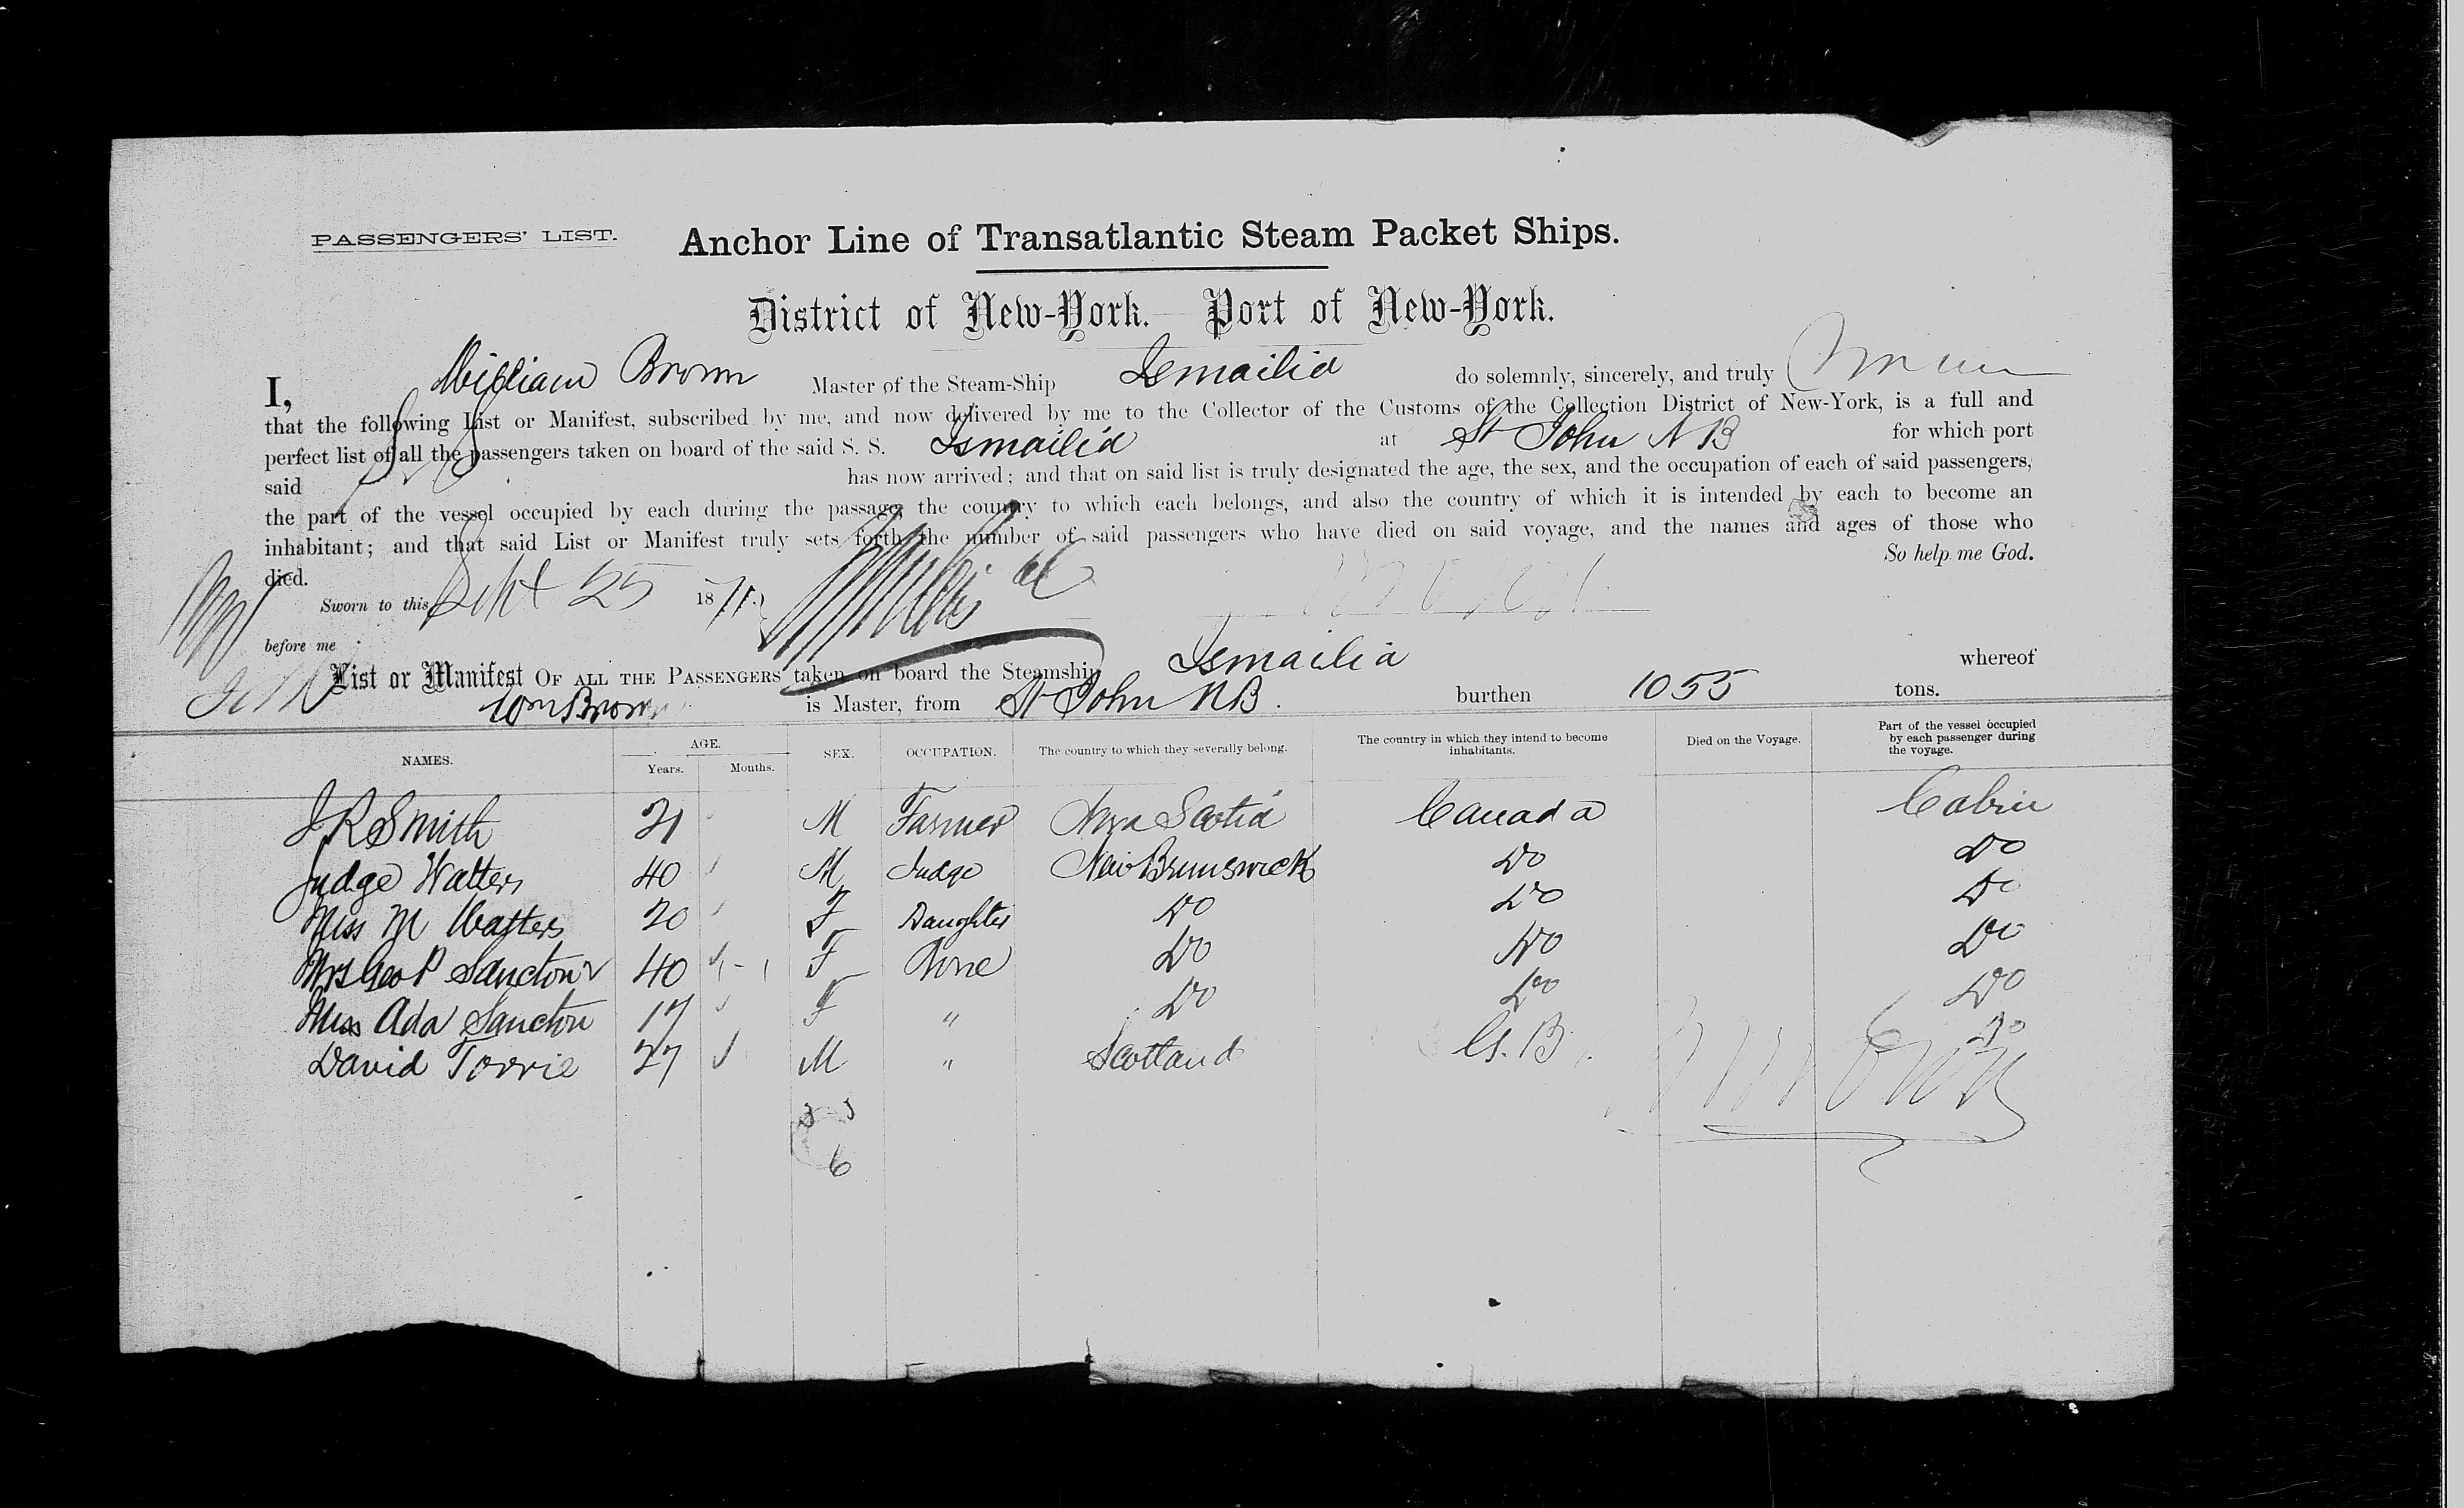 PASSENGERS' LIST.
Anchor Line of Transatlantic Steam Packet Ships.
District of New-York. Port of New-York.
I, William Brown Master of the Steam-Ship Ismailia do solemnly, sincerely, and truly
that the following List or Manifest, subscribed by me, and now delivered by me to the Collector of the Customs of the Collection District of New-York, is a full and
perfect list of all the passengers taken on board of the said S. S. Ismailia at St John N B for which port
said has now arrived; and that on said list is truly designated the age, the sex, and the occupation of each of said passengers,
the part of the vessel occupied by each during the passage, the country to which each belongs, and also the country of which it is intended by each to become an
inhabitant; and that said List or Manifest truly sets forth the number of said passengers who have died on said voyage, and the names and ages of those who
died. So help me God.
Sworn to this Sept 25 1871.
before me
List or Manifest OF ALL THE PASSENGERS taken on board the Steamship Ismailia whereof
Wm Brown is Master, from St John NB. burthen 1055 tons.
NAMES. AGE. Years. Months. SEX. OCCUPATION. The country to which they severally belong. The country in which they intend to become inhabitants. Died on the Voyage. Part of the vessel occupied by each passenger during the voyage.
J R Smith 21 M Farmer Nova Scotia Canada Cabin
Judge Watters 40 M Judge New Brunswick Do Do
Miss M Watters 20 F Daughter Do Do Do
Mrs Geo P Sancton 40 F None Do Do Do
Miss Ada Sancton 17 F " Do Do Do
David Torrie 27 M " Scotland G. B. Do
3 3
6